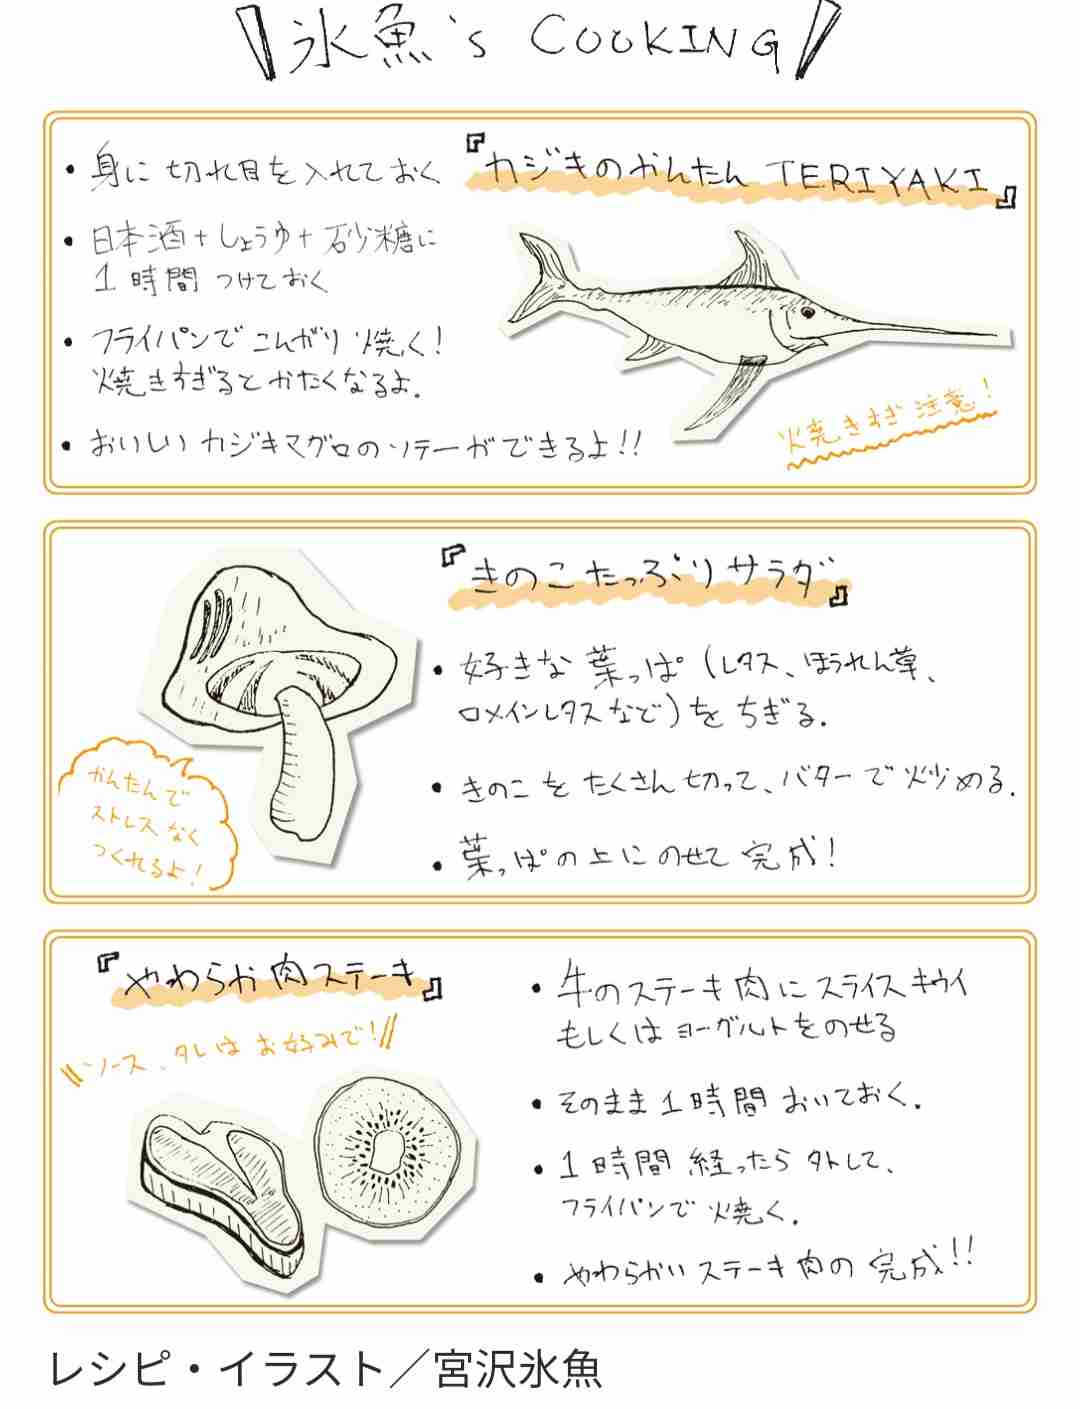 氷魚's COOKING
『カジキのかんたん TERIYAKI』
・身に切れ目を入れておく
・日本酒+しょうゆ+砂糖に
1時間つけておく
・フライパンでこんがり焼く!
焼きすぎるとかたくなるよ。
・おいしいカジキマグロのソテーができるよ!!
焼きすぎ注意!
『きのこたっぷりサラダ』
・好きな葉っぱ(レタス、ほうれん草、
ロメインレタスなど)をちぎる。
・きのこをたくさん切って、バターで炒める。
・葉っぱの上にのせて完成!
かんたんで
ストレスなく
つくれるよ!
『やわらか肉ステーキ』
\\ソース、タレはお好みで!//
・牛のステーキ肉にスライスキウイ
もしくはヨーグルトをのせる
・そのまま1時間おいておく。
・1時間経ったら外して、
フライパンで焼く。
・やわらかいステーキ肉の完成!!
レシピ・イラスト/宮沢氷魚